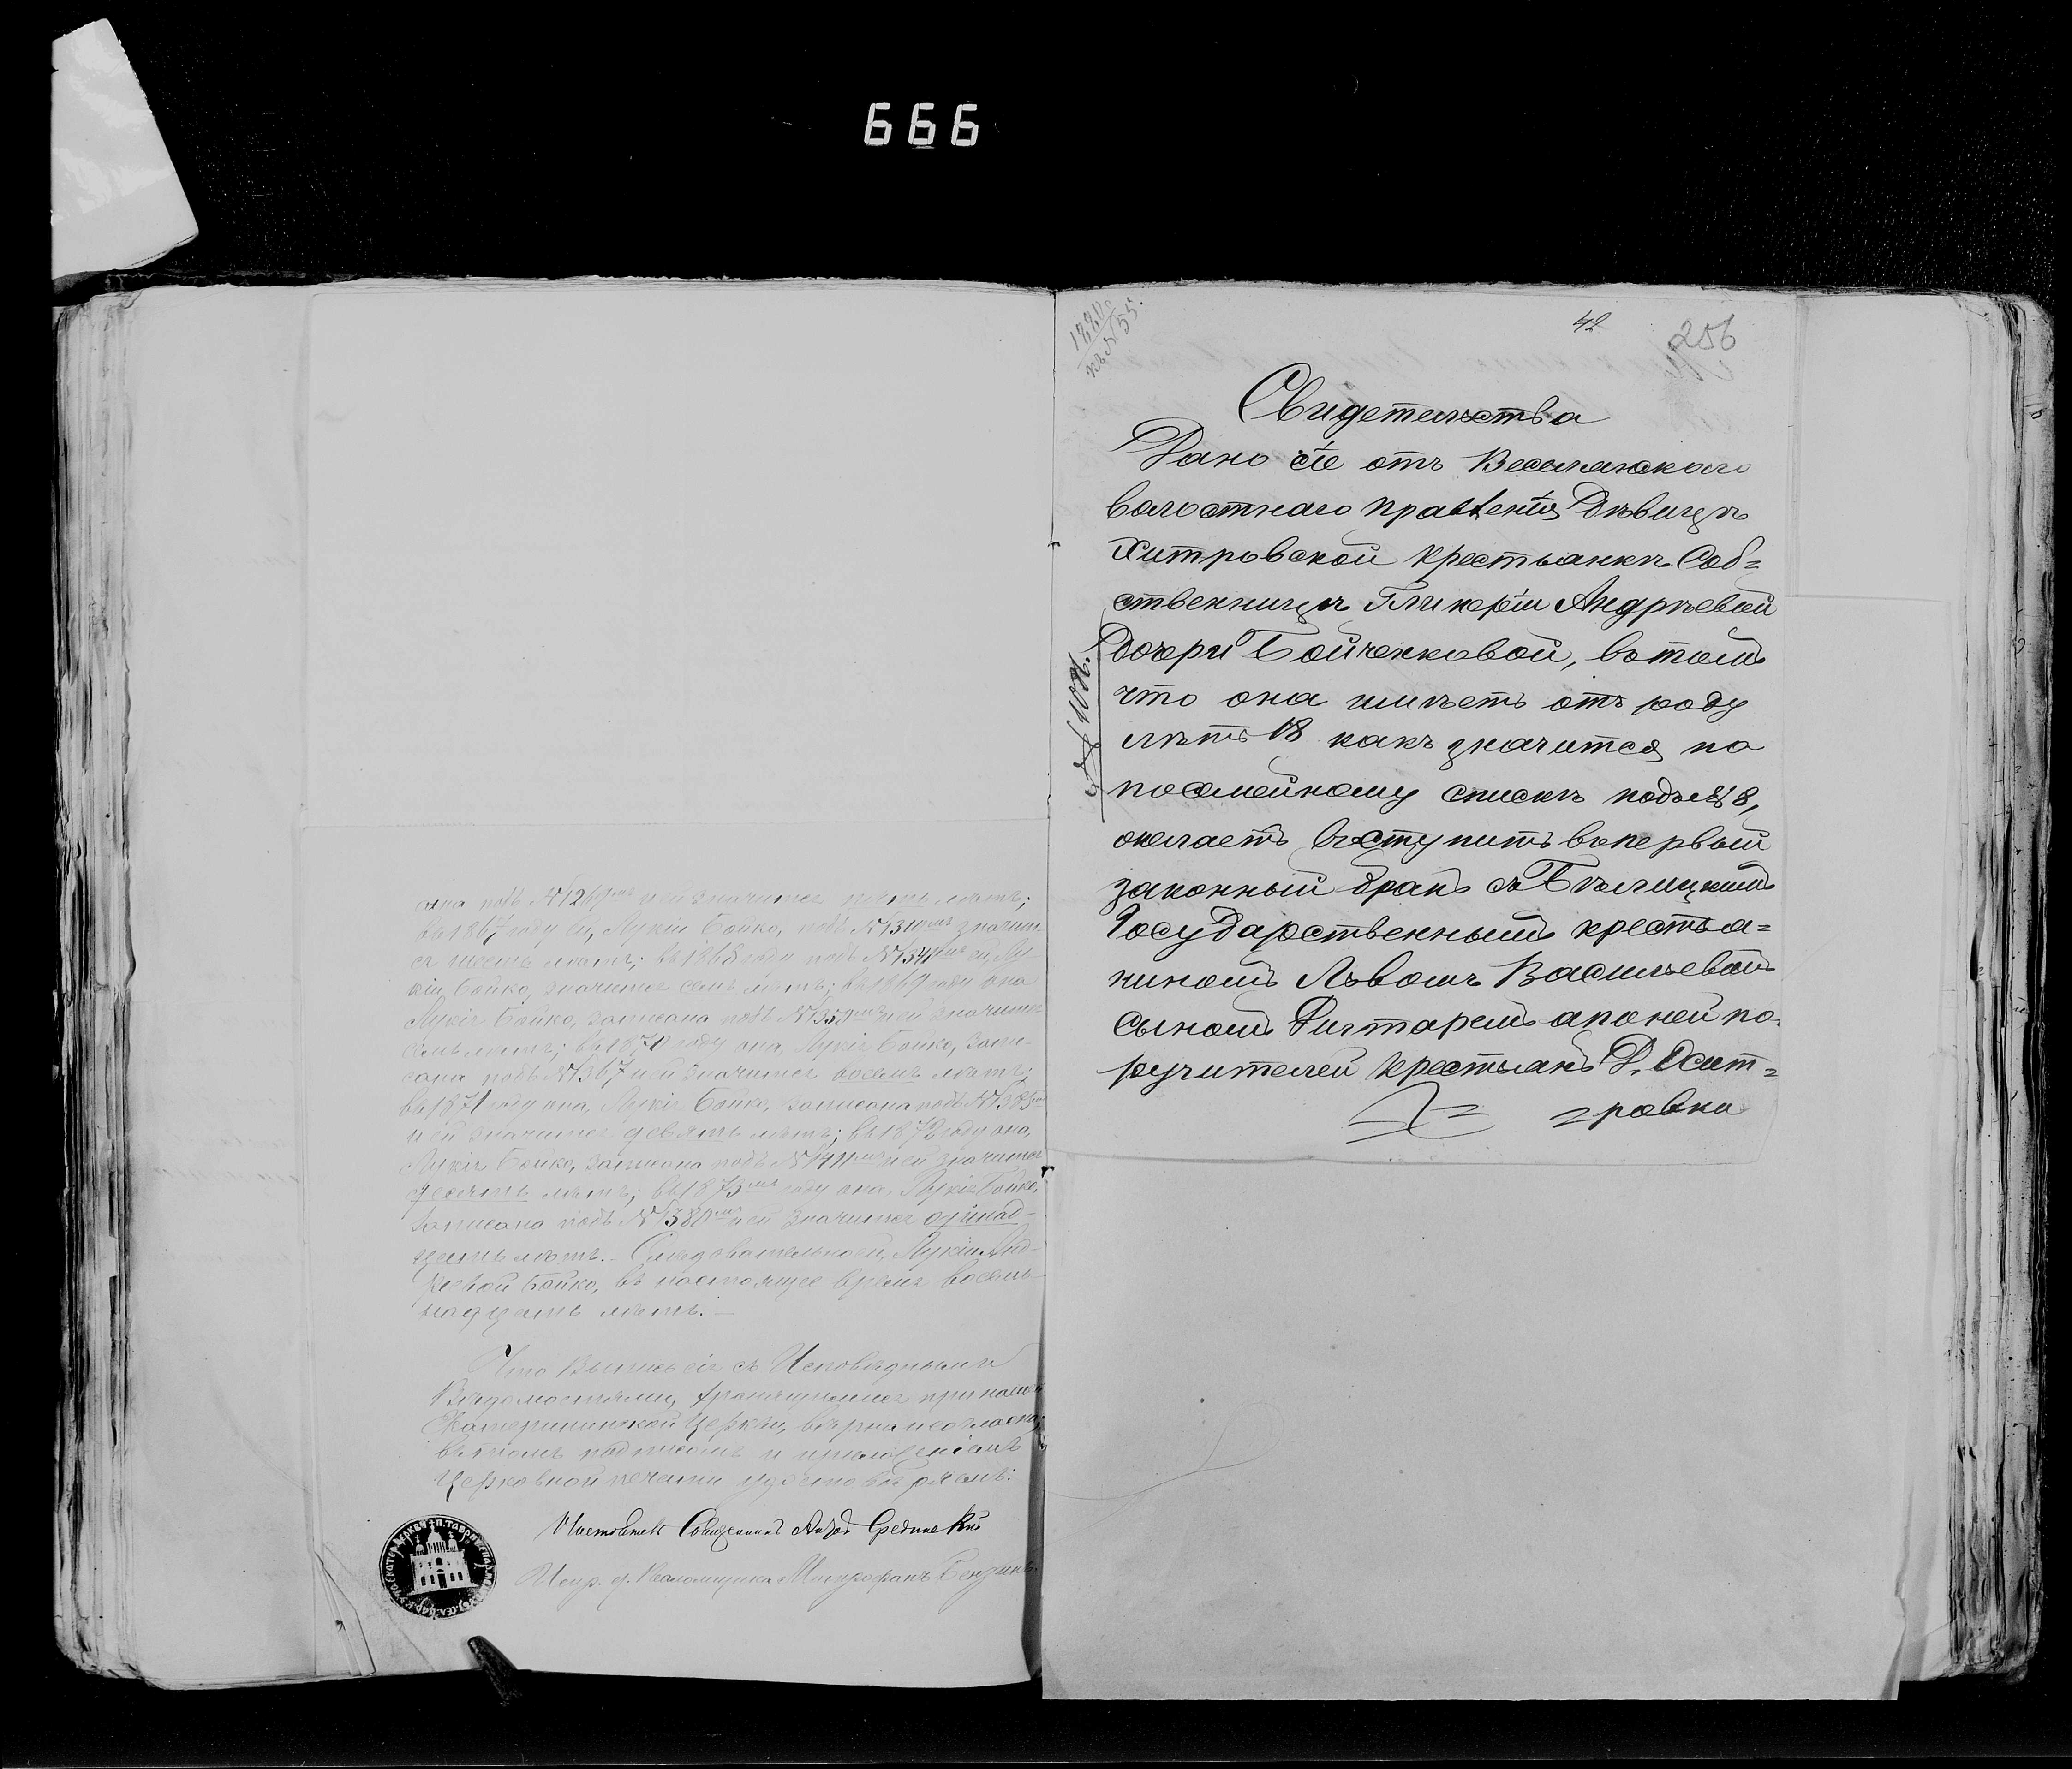 666
она подъ № 1269мъ и ей значится пять лѣтъ;
въ 1867 году ей, Лукіи Бойко, подъ № 1310мъ значит-
ся шесть лѣтъ; въ 1868 году подъ № 1341мъ ей, Лу-
кіи Бойко, значится семь лѣтъ; въ 1869 году она
Лукія Бойко, записана подъ и ей значится
семь лѣтъ; въ 1870 году она, Лукія Бойко, запи-
сана подъ № 1367 и ей значится восемь лѣтъ;
въ 1871 году она, Лукія Бойко, записана подъ
и ей значится девять лѣтъ; въ 1872 году она,
Лукія Бойко, записана подъ № 1411мъ и ей значится
десять лѣтъ; въ 1873мъ году она, Лукія Бойко,
записана подъ № 1380мъ и ей значится одинад-
цать лѣтъ. Слѣдовательно ей, Лукіи Анд-
реевой Бойко, въ настоящее время восем-
надцать лѣтъ. —
Что выпись сія съ Исповѣдными
Вѣдомостями, хранящимися при нашей
Екатерининской Церкви, вѣрна и согласна,
въ томъ подписомъ и приложеніемъ
Церковной печати удостовѣряемъ:
Настоятель Священникъ Сребинскій
Испр. д. Псаломщика Митрофанъ
1880
къ № 55.
42
256
Свидетельства
Дано сіе отъ Веселянскаго
волостнаго правленія Дѣвицѣ
Хитровской крестьянкѣ Соб=
ственницѣ Гликеріи Андрѣевой
Дочери Бойченковой, вътомъ
что она имѣетъ отъ роду
лѣтъ 18 какъ значится по
посемейному спискѣ подъ № 8,
желаетъ въступить въпервый
законный бракъ съ Бѣлицкимъ
Государственнымъ крестья=
ниномъ Львомъ Васильевымъ
сыномъ Дигтаремъ апоней по-
ручителей крестьянъ Д. Осит=
=ровка